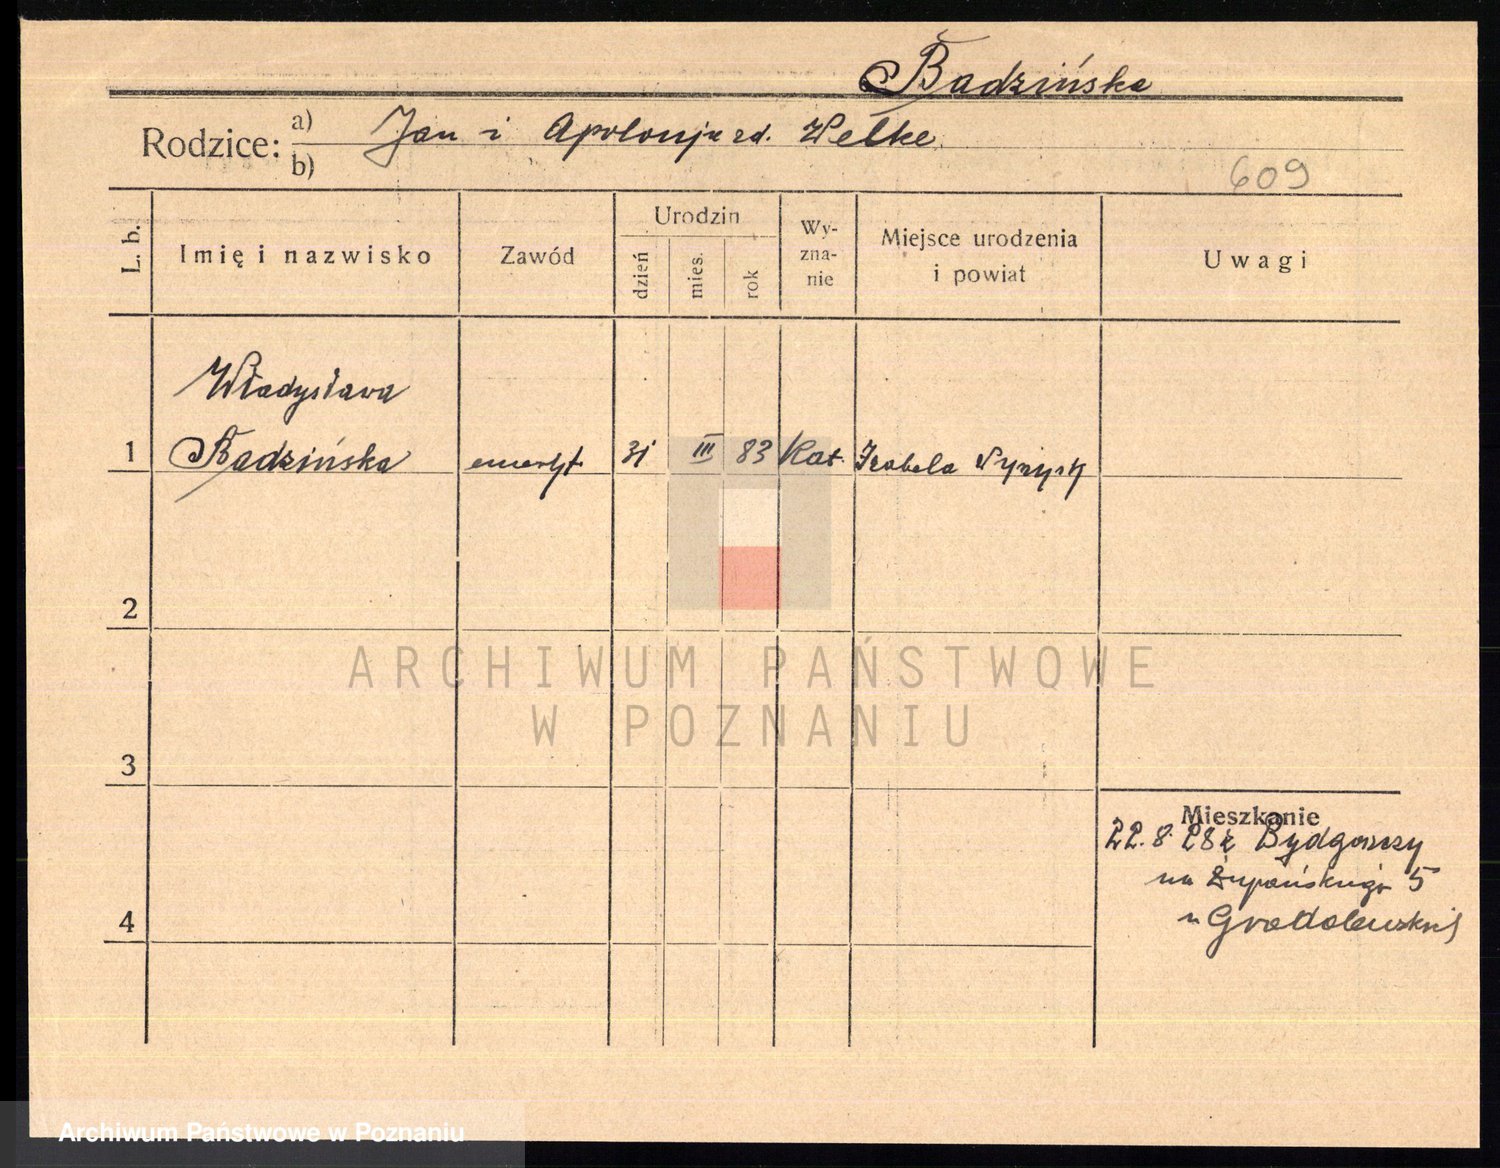 Badzińska
Rodzice: a) Jan i Apolonja zd. Welke
b)
609
L. b.
Imię i nazwisko
Zawód
Urodzin
dzień
mies.
rok
Wy-
zna-
nie
Miejsce urodzenia
i powiat
Uwagi
Władysława
1 Badzińska emeryt. 31 III 83 Kat. Izabela Wyrzysk
2
ARCHIWUM PAŃSTWOWE
W POZNANIU
3
Mieszkanie
22.8.28 z Bydgoszczy
na Żupańskiego 5
4
Archiwum Państwowe w Poznaniu